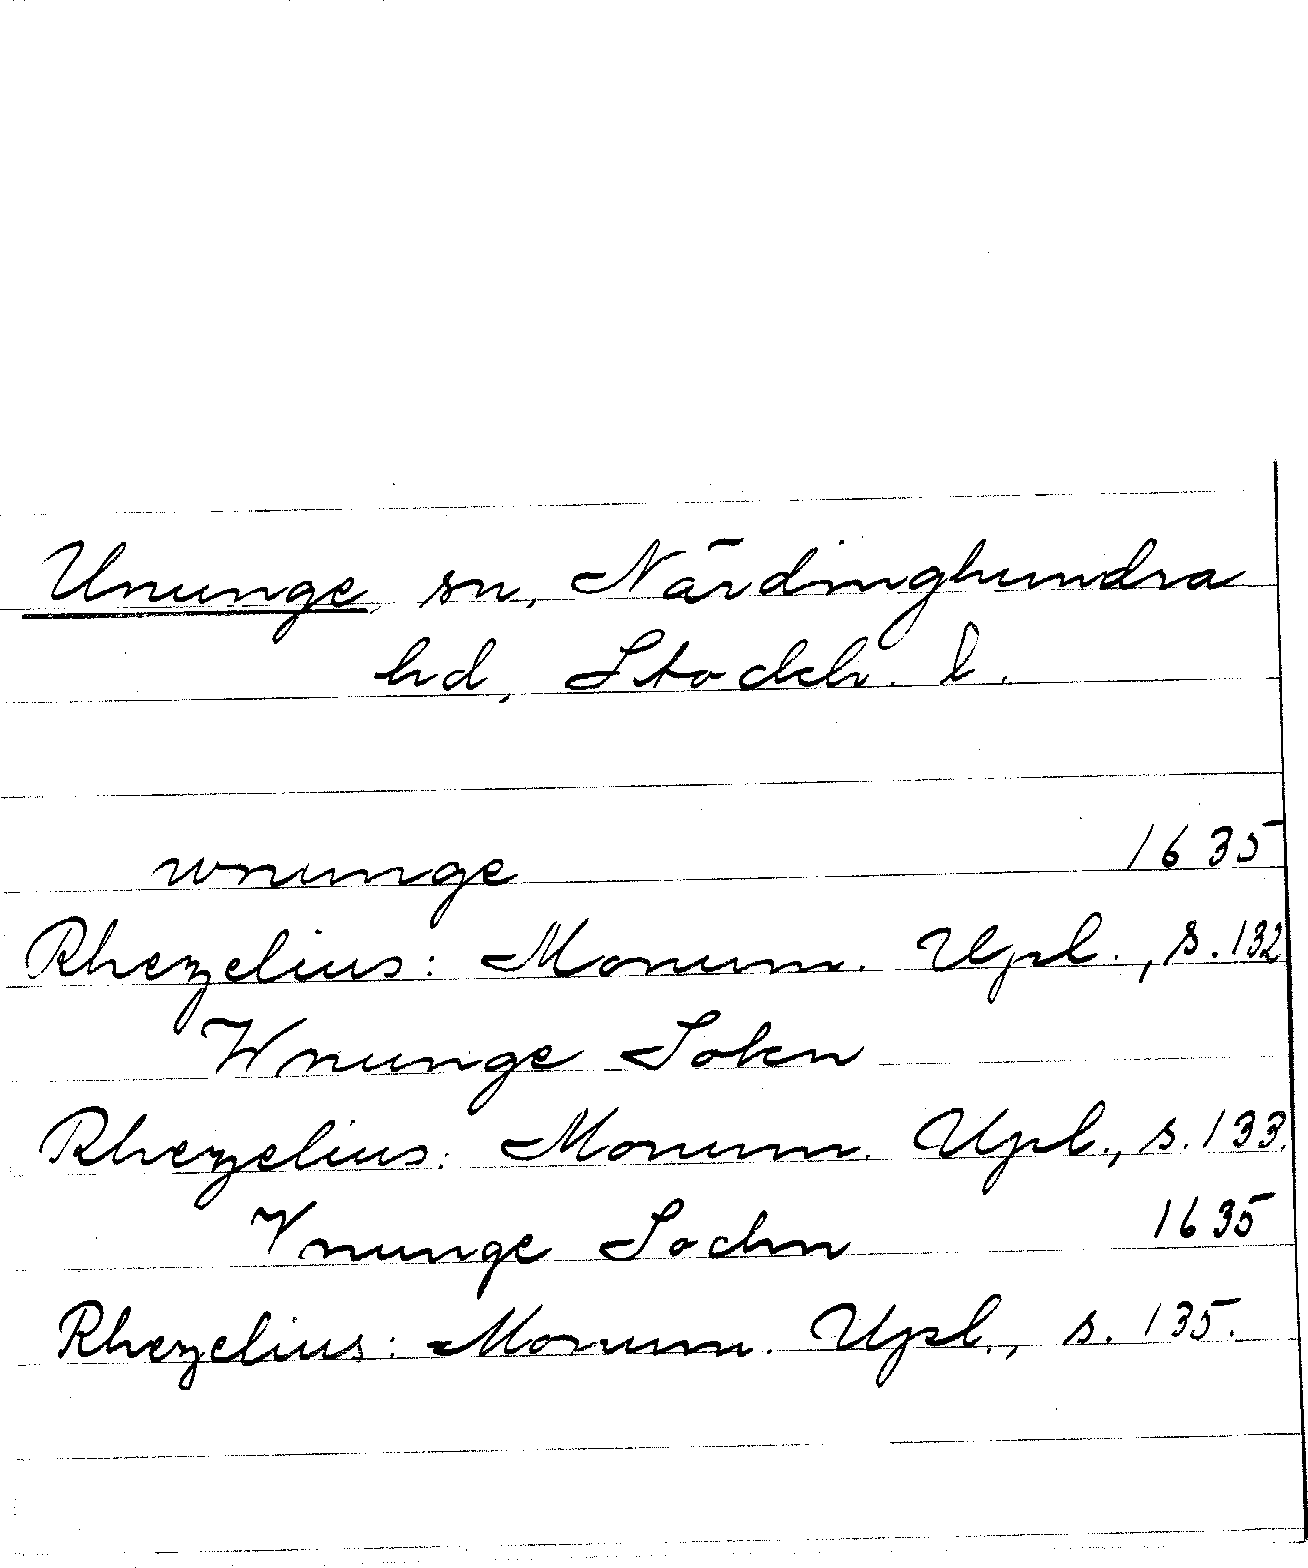 Ununge sn, Närdinghundra
hd, Stockh. l.
wnunge 1635
Rhezelius: Monum. Upl., s. 132
Wnunge Sokn
Rhezelius: Monum. Upl., s. 133.
Vnunge Sochn 1635
Rhezelius: Monum. Upl., s. 135.